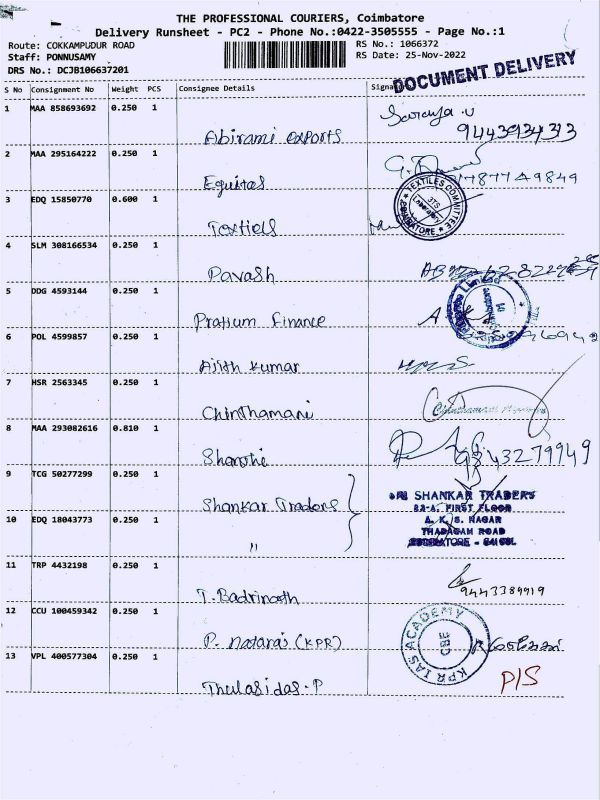 THE PROFESSIONAL COURIERS, Coimbatore
Delivery Runsheet - PC2 - Phone No.:0422-3505555 - Page No.:1
Route: COKKAMPUDUR ROAD RS No.: 1066372
Staff: PONNUSAMY RS Date: 25-Nov-2022
DRS No.: DCJB106637201 DOCUMENT DELIVERY
S No Consignment No Weight PCS Consignee Details
1 MAA 858693692 0.250 1
Abirami exports
2 MAA 295164222 0.250 1
Equitas
3 EDQ 15850770 0.600 1
TEXTILES COMMITTEE
4 SLM 308166534 0.250 1
Pavash
5 DDG 4593144 0.250 1
Finance
6 POL 4599857 0.250 1
Ajith Kumar
7 HSR 2563345 0.250 1
Chinthamani
8 MAA 293082616 0.810 1
9843279949
9 TCG 50277299 0.250 1
Shankar Traders
SRI SHANKAR TRADERS
22-A, FIRST FLOOR
A. K. S. NAGAR
THADAGAM ROAD
10 EDQ 18043773 0.250 1
"
11 TRP 4432198 0.250 1
T. Badrinath
12 CCU 100459342 0.250 1
P. Nataraj (KPR)
KPR IAS ACADEMY
CBE
13 VPL 400577304 0.250 1
Thulasidas.P
P/S